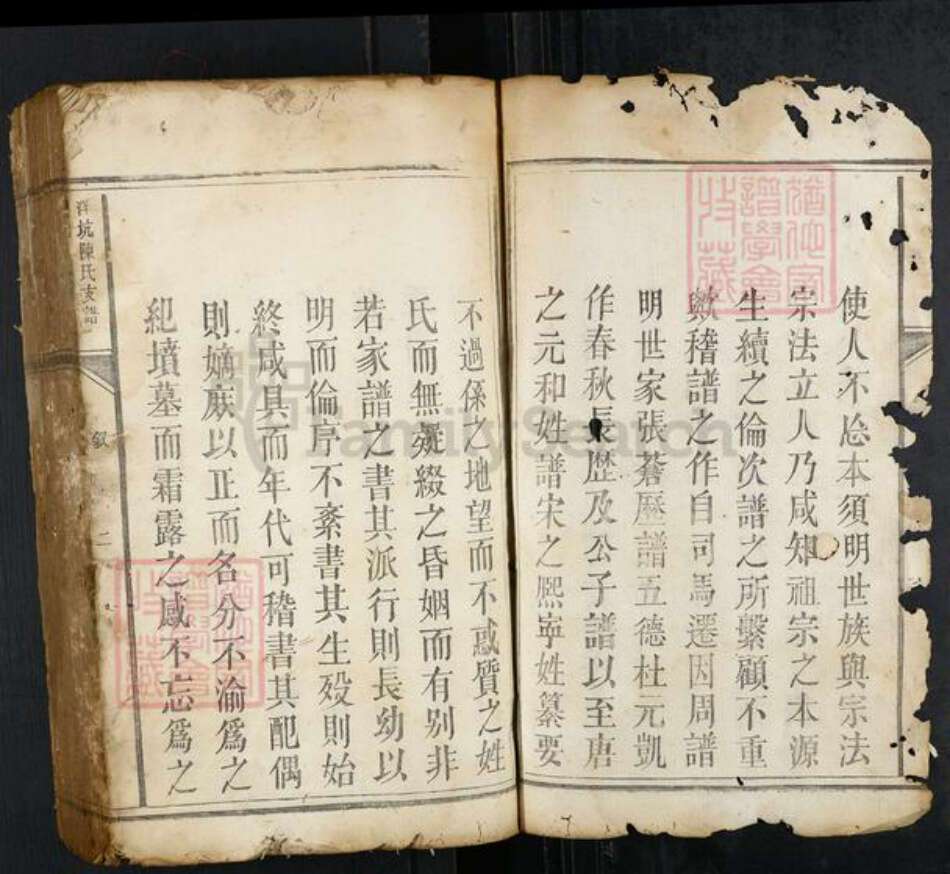 使人不忘本須明世族與宗法
宗法立人乃咸知祖宗之本源
生續之倫次譜之所繫顧不重
歟稽譜之作自司馬遷因周譜
明世家張蒼歷譜五德杜元凱
作春秋長歷及公子譜以至唐
之元和姓譜宋之熙寧姓纂要
不過係之地望而不惑質之姓
氏而無疑綴之昏姻而有别非
若家譜之書其派行則長幼以
明而倫序不紊書其生殁則始
終咸具而年代可稽書其配偶
則嫡庻以正而名分不淪爲之
紀墳墓而霜露之感不忘爲之
坑陳氏支譜
叙
二
譜學會
收藏
FamilySearch
譜學會
收藏